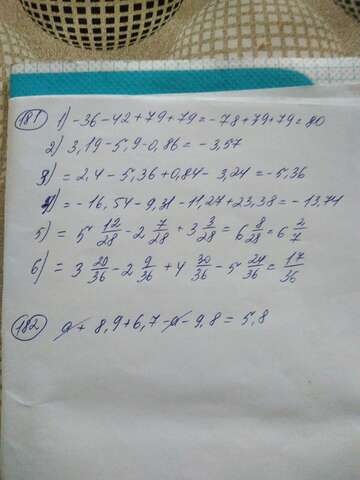 181 1) -36-42+79+79=-78+79+79=80
2) 3,19-5,9-0,86=-3,57
3) =2,4-5,36+0,84-3,24=-5,36
4) =-16,54-9,31-11,27+23,38=-13,74
5) = 5 12/28 - 2 7/28 + 3 3/28 = 6 8/28 = 6 2/7
6) = 3 20/36 - 2 9/36 + 4 30/36 - 5 24/36 = 17/36
182 a+8,9+6,7-a-9,8=5,8